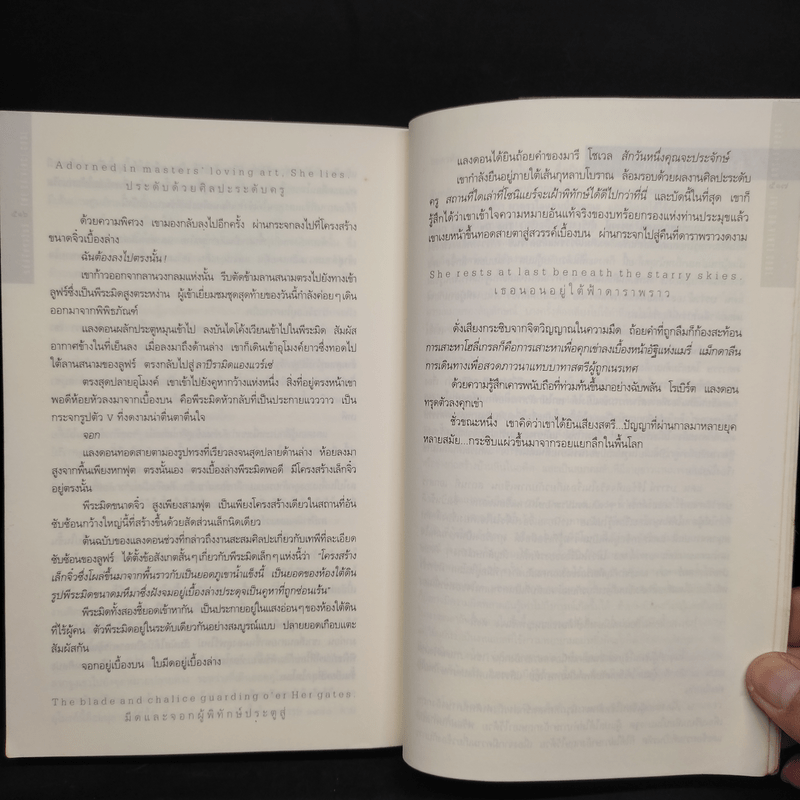 Adorned in masters' loving art, She lies.
ประดับด้วยศิลปะระดับครู
ด้วยความพิศวง เขามองกลับลงไปอีกครั้ง ผ่านกระจกลงไปที่โครงสร้าง
ขนาดจิ๋วเบื้องล่าง
ฉันต้องลงไปตรงนั้น!
เขาก้าวออกจากลานวงกลมแห่งนั้น รีบตัดข้ามลานสนามตรงไปยังทางเข้า
ลูฟร์ซึ่งเป็นพีระมิดสูงตระหง่าน ผู้เข้าเยี่ยมชมชุดสุดท้ายของวันนี้กำลังค่อยๆ เดิน
ออกมาจากพิพิธภัณฑ์
แลงดอนผลักประตูหมุนเข้าไป ลงบันไดโค้งเวียนเข้าไปในพีระมิด สัมผัส
อากาศข้างในที่เย็นลง เมื่อลงมาถึงด้านล่าง เขาก็เดินเข้าอุโมงค์ยาวซึ่งทอดไป
ใต้ลานสนามของลูฟร์ ตรงกลับไปสู่ ลาปีรามิดแองแวร์เซ่
ตรงสุดปลายอุโมงค์ เขาเข้าไปยังคูหากว้างแห่งหนึ่ง สิ่งที่อยู่ตรงหน้าเขา
พอดีห้อยหัวลงมาจากเบื้องบน คือพีระมิดหัวกลับที่เป็นประกายแวววาว เป็น
กระจกรูปตัว V ที่งดงามน่าตื่นตาตื่นใจ
จอก
แลงดอนทอดสายตามองรูปทรงที่เรียวลงจนสุดปลายด้านล่าง ห้อยลงมา
สูงจากพื้นเพียงหกฟุต ตรงนั้นเอง ตรงเบื้องล่างพีระมิดพอดี มีโครงสร้างเล็กจิ๋ว
อยู่ตรงนั้น
พีระมิดขนาดจิ๋ว สูงเพียงสามฟุต เป็นเพียงโครงสร้างเดียวในสถานที่อัน
ซับซ้อนกว้างใหญ่นี้ที่สร้างขึ้นด้วยสัดส่วนเล็กนิดเดียว
ต้นฉบับของแลงดอนช่วงที่กล่าวถึงงานสะสมศิลปะเกี่ยวกับเทพีที่ละเอียด
ซับซ้อนของลูฟร์ ได้ตั้งข้อสังเกตสั้นๆ เกี่ยวกับพีระมิดเล็กๆ แห่งนี้ว่า "โครงสร้าง
เล็กจิ๋วซึ่งโผล่ขึ้นมาจากพื้นราวกับเป็นยอดภูเขาน้ำแข็งนี้ เป็นยอดของห้องใต้ดิน
รูปพีระมิดขนาดมหึมาซึ่งฝังจมอยู่เบื้องล่างประดุจเป็นคูหาที่ถูกซ่อนเร้น"
พีระมิดทั้งสองชี้ยอดเข้าหากัน เป็นประกายอยู่ในแสงอ่อนๆ ของห้องใต้ดิน
ที่ไร้ผู้คน ตัวพีระมิดอยู่ในระดับเดียวกันอย่างสมบูรณ์แบบ ปลายยอดเกือบแตะ
สัมผัสกัน
จอกอยู่เบื้องบน ใบมีดอยู่เบื้องล่าง
The blade and chalice guarding o'er Her gates.
มีดและจอกผู้พิทักษ์ประตูสู่
แลงดอนได้ยินถ้อยคำของมารี โชเวล สักวันหนึ่งคุณจะประจักษ์
เขากำลังยืนอยู่ภายใต้เส้นกุหลาบโบราณ ล้อมรอบด้วยผลงานศิลปะระดับ
ครู สถานที่ใดเล่าที่โซนิแยร์จะเฝ้าพิทักษ์ได้ดีไปกว่าที่นี่ และบัดนี้ในที่สุด เขาก็
รู้สึกได้ว่าเขาเข้าใจความหมายอันแท้จริงของบทร้อยกรองแห่งท่านประมุขแล้ว
เขาเงยหน้าขึ้นทอดสายตาสู่สวรรค์เบื้องบน ผ่านกระจกไปสู่คืนที่ดาราพราวงดงาม
She rests at last beneath the starry skies.
เธอนอนอยู่ใต้ฟ้าดาราพราว
ดั่งเสียงกระซิบจากจิตวิญญาณในความมืด ถ้อยคำที่ถูกลืมก็ก้องสะท้อน
การเสาะหาโฮลี่เกรลก็คือการเสาะหาเพื่อคุกเข่าลงเบื้องหน้าอัฐิแห่งแมรี่ แม็กดาลีน
การเดินทางเพื่อสวดภาวนาแทบบาทาสตรีผู้ถูกเนรเทศ
ด้วยความรู้สึกเคารพนับถือที่ท่วมท้นขึ้นมาอย่างฉับพลัน โรเบิร์ต แลงดอน
ทรุดตัวลงคุกเข่า
ชั่วขณะหนึ่ง เขาคิดว่าเขาได้ยินเสียงสตรี...ปัญญาที่ผ่านกาลมาหลายยุค
หลายสมัย...กระซิบแผ่วขึ้นมาจากรอยแยกลึกในพื้นโลก